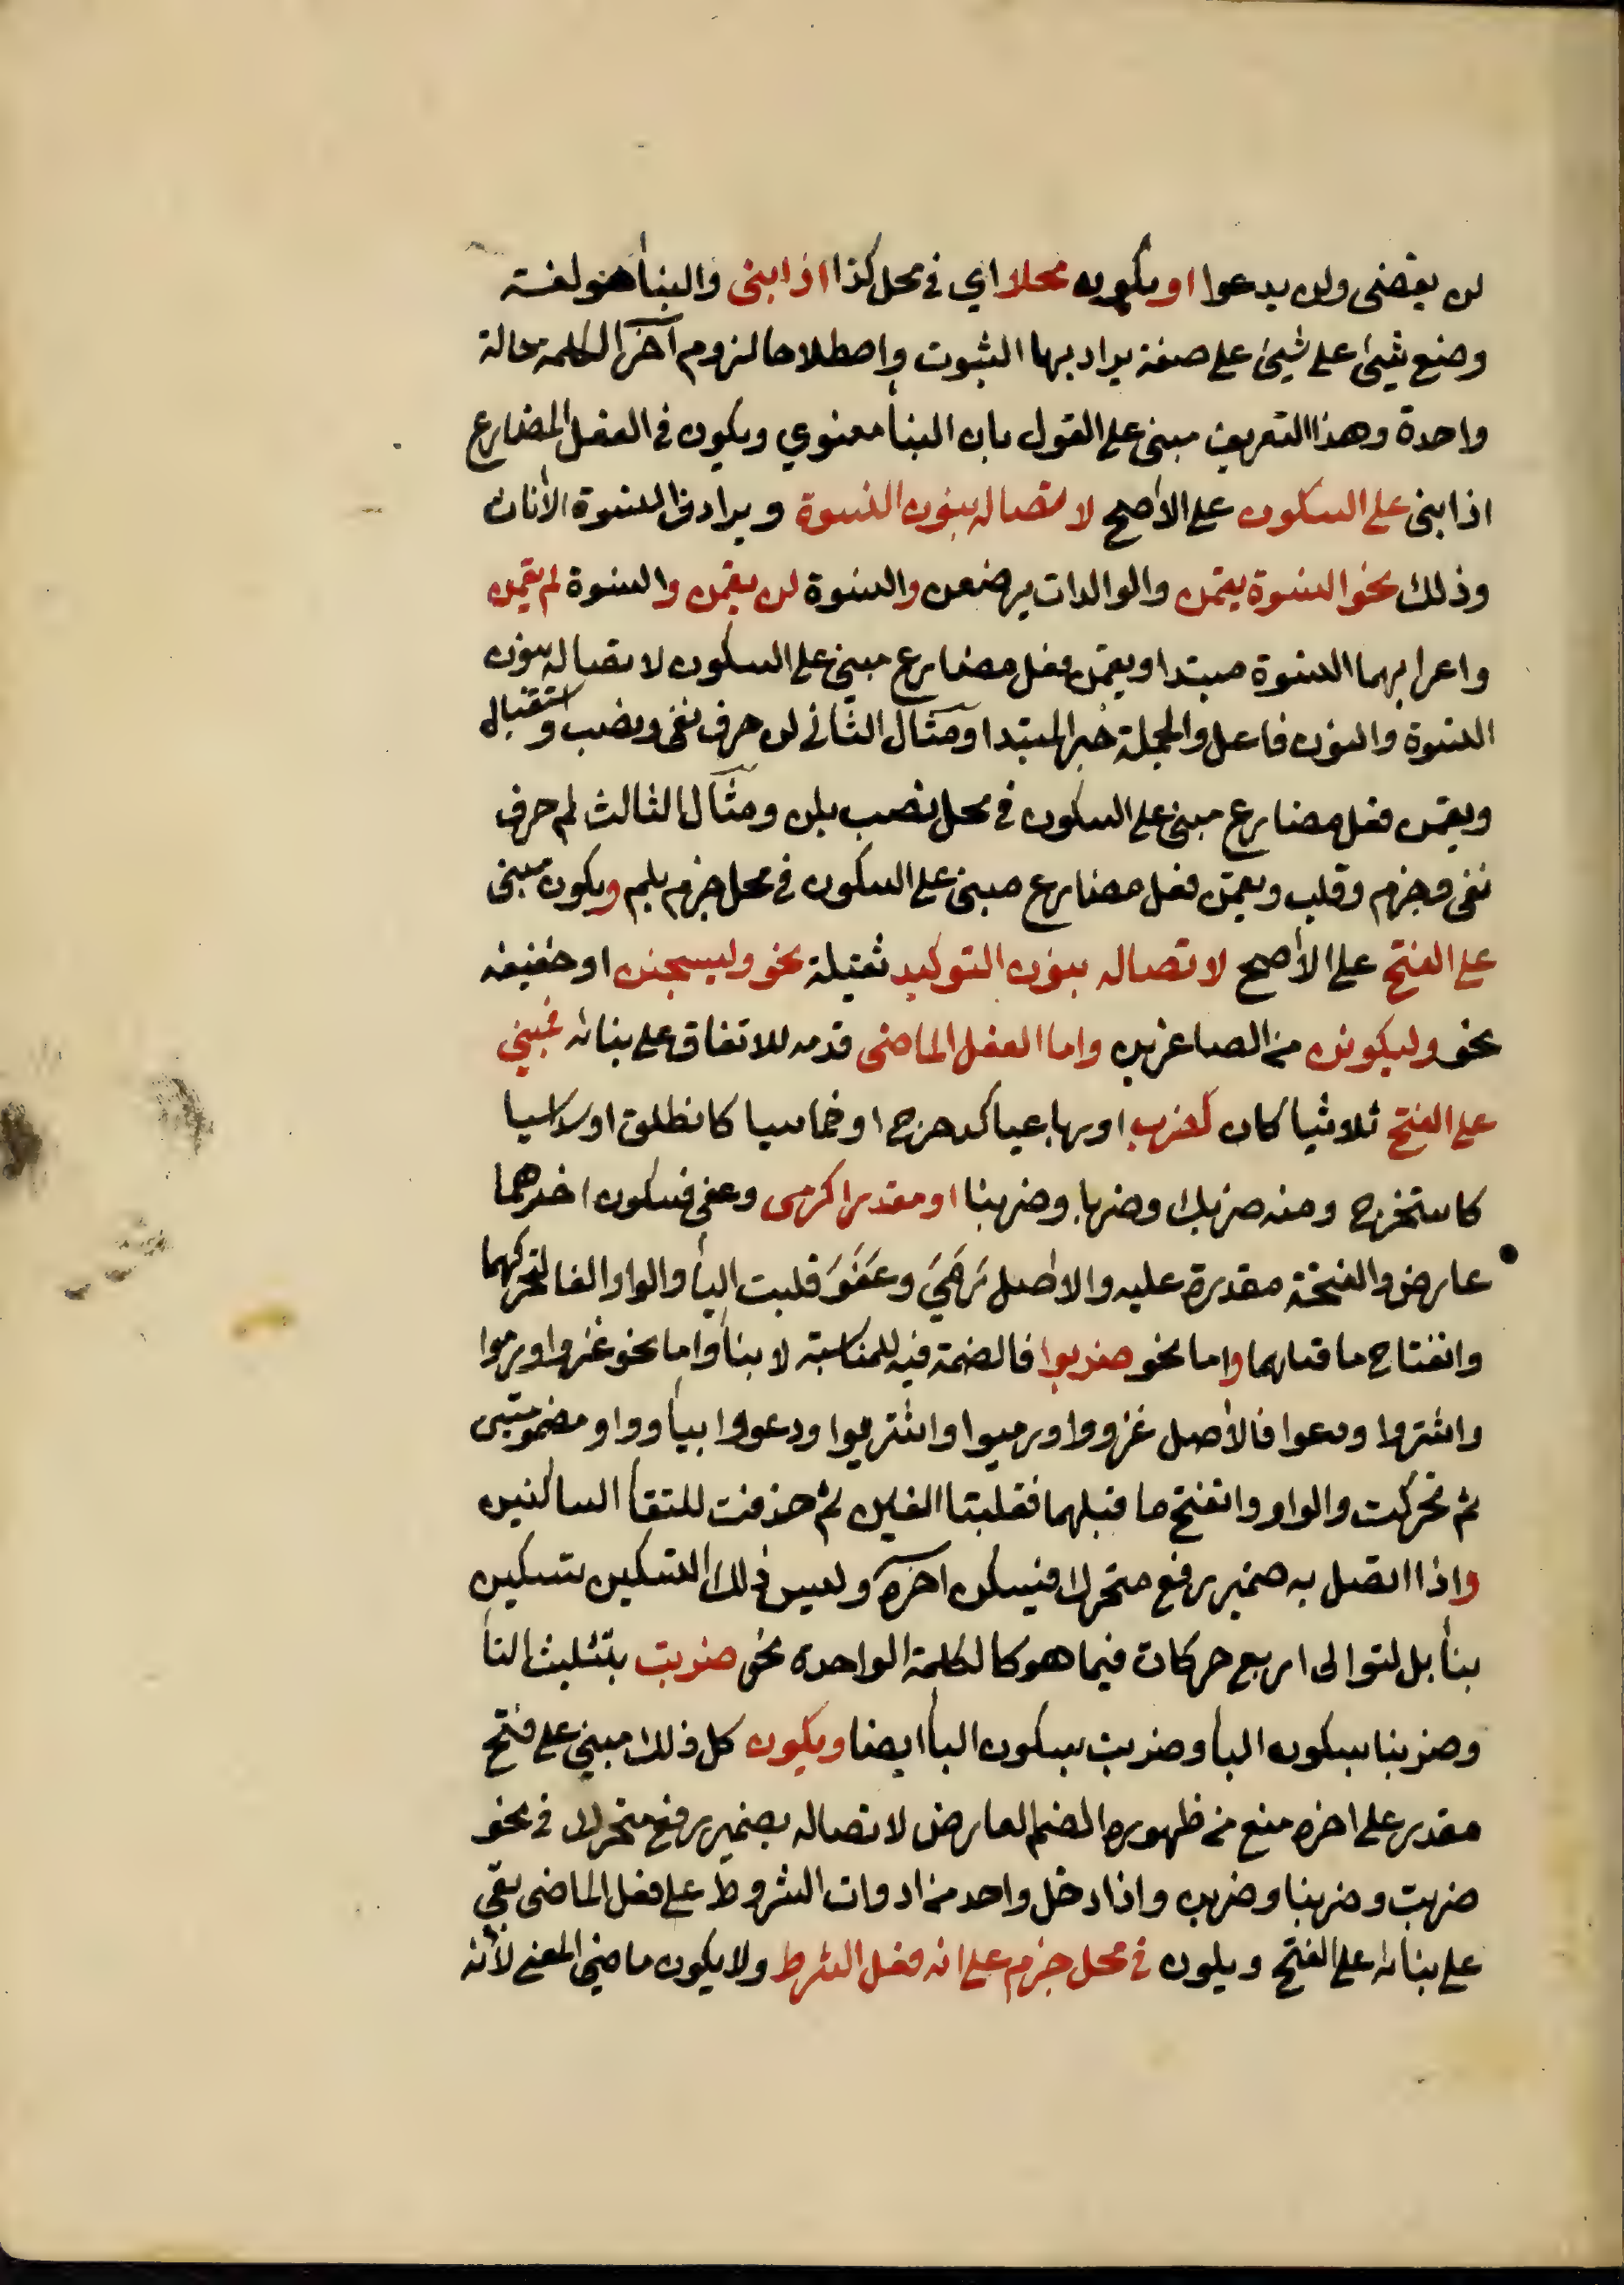 لن يقضى ولن يدعوا او يكون محلا اي في محل كذا اذا بنى والبنأ هو لغة
وضع شيئ على شيئ على صفة يراد بها الثبوت واصطلاحا لزوم آخر الكلمة حالة
واحدة وهذا التعريف مبنى على القول بان البنأ معنوي ويكون في الفعل المضارع
اذا بنى على السكون على الأصح لاتصاله بنون النسوة ويرادف النسوة الأناث
وذلك نحو النسوة يقمن والوالدات يرضعن والنسوة لن يقمن والنسوة لم يقمن
واعرابهما النسوة مبتدا ويقمن فعل مضارع مبنى على السكون لاتصاله بنون
النسوة والنون فاعل والجملة خبر المبتدا ومثال الثانى لن حرف نفى ونصب واستقبال
ويقمن فعل مضارع مبنى على السكون في محل نصب بلن ومثال الثالث لم حرف
نفى وجزم وقلب ويقمن فعل مضارع مبنى على السكون في محل جزم بلم ويكون مبنى
على الفتح على الأصح لاتصاله بنون التوكيد ثقيلة نحو وليسجنن او خفيفه
نحو وليكونن من الصاغرين واما الفعل الماضى قدمه للاتفاق على بنائه فمبني
على الفتح ثلاثيا كان كضرب او رباعيا كدحرج او خماسيا كانطلق او سداسيا
كاستخرج ومنه ضربك وضربا وضربنا او مقدرا كرمى وعفى فسكون اخرهما
عارض والفتحة مقدرة عليه والاصل رَمَيَ وعَفَوَ قلبت اليأ والواو الفا لتحركهما
وانفتاح ما قبلهما واما نحو ضربوا فالضمة فيه للمناسبة لا بنأ واما نحو غزوا ورموا
واشتروا ودعوا فالأصل غزووا ورميوا واشتريوا ودعووا بيأ وواو مضمومتين
ثم تحركت والواو وانفتح ما قبلهما فقلبتا الفين ثم حذفت للتقأ الساكنين
واذا اتصل به ضمير رفع متحرك فيسكن اخره وليس ذلك التسكين تسكين
بنأ بل لتوالى اربع حركات فيما هو كالكلمة الواحده نحو ضربت بتثليث التأ
وضربنا بسكون البأ وضربت بسكون البأ ايضا ويكون كل ذلك مبني على فتح
مقدر على اخره منع من ظهوره الضم العارض لاتصاله بضمير رفع متحرك في نحو
ضربت وضربنا وضربن واذا دخل واحد من ادوات الشروط على فعل الماضى بقي
على بنائه على الفتح ويكون في محل جزم على انه فعل الشرط ولا يكون ماضي المعنى لأنه